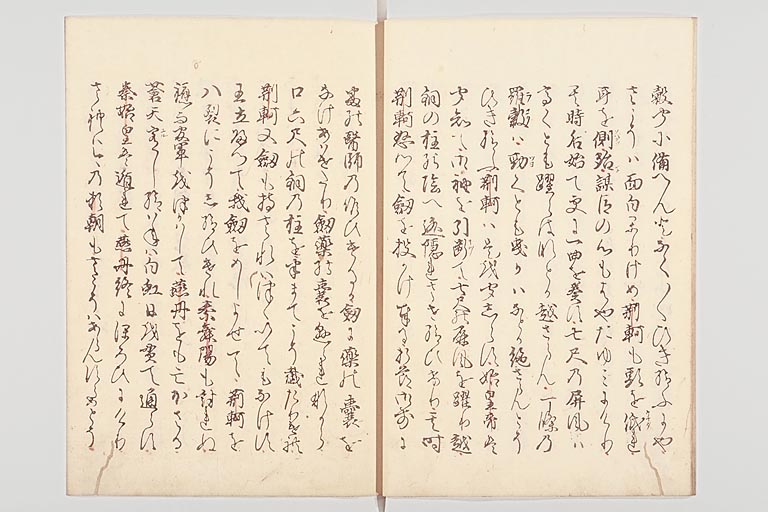 叡聞に備へんと なく／＼ひき給ふにや
さこそハ面白かりけめ荊軻も頭を低れ
耳を側殆謀臣の心もはやたゆミにけり
其時后始て更に一曲を奏す七尺の屏風ハ
高くとも躍らはなとか越さらん一條の
羅穀ハ勁くとも曳かハなとか絶さらんとそ
ひき給ふ荊軻ハ是を聞しらす始皇帝は
聞知て御袖を引断て七尺の屏風を躍り越
銅の柱の陰へ逃隠れさせ給ひけり其時
荊軻怒つて劔を投かけ奉る折節御前に
番の醫師の候ひけるか劔に藥の嚢を
なけあハせたり劔藥の嚢を懸られなから
口六尺の銅の柱を半まてこそ截たりけれ
荊軻又劔も持されハつゝいてもなけす
王立帰つて我劔をめしよせて荊軻を
八裂にこそし給ひけれ秦舞陽も討れぬ
頓而官軍を遣ハして燕丹をも亡さる
蒼天ゆるし給ハねハ白虹日を貫て通らす
秦始皇は遁れて燕丹終にほろひにけり
されハ今の頼朝もさこそハあらんすらめとそ